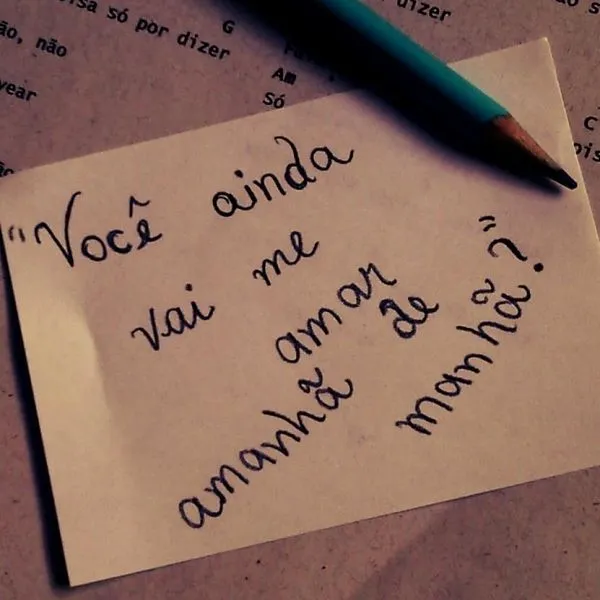 isa só por dizer
G
uizer
ão, não
Am
year
Só
C
"Você ainda
vai me
amar
amanhã de
manhã?"